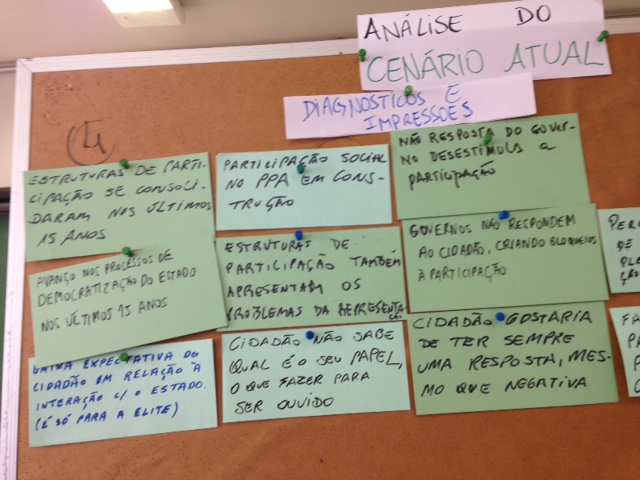 ANÁLISE DO
CENÁRIO ATUAL
DIAGNOSTICOS E
IMPRESSÕES
4
ESTRUTURAS DE PARTI-
CIPAÇÃO SE CONSOLI-
DARAM NOS ÚLTIMOS
15 ANOS
PARTICIPAÇÃO SOCIAL
NO PPA EM CONS-
TRUÇÃO
NÃO RESPOSTA DO GOVER-
NO DESESTIMULA A
PARTICIPAÇÃO
AVANÇO NOS PROCESSOS DE
DEMOCRATIZAÇÃO DO ESTADO
NOS ÚLTIMOS 15 ANOS
ESTRUTURAS DE
PARTICIPAÇÃO TAMBÉM
APRESENTAM OS
PROBLEMAS DA REPRESENTA
ÇÃO
GOVERNOS NÃO RESPONDEM
AO CIDADÃO, CRIANDO BLOQUEIOS
À PARTICIPAÇÃO
PERC
DE
PLE
ÇÃO
BAIXA EXPECTATIVA DO
CIDADÃO EM RELAÇÃO À
INTERAÇÃO C/ O ESTADO.
(É SÓ PARA A ELITE)
CIDADÃO NÃO SABE
QUAL É O SEU PAPEL,
O QUE FAZER PARA
SER OUVIDO
CIDADÃO GOSTARIA
DE TER SEMPRE
UMA RESPOSTA, MES-
MO QUE NEGATIVA
FA
PA